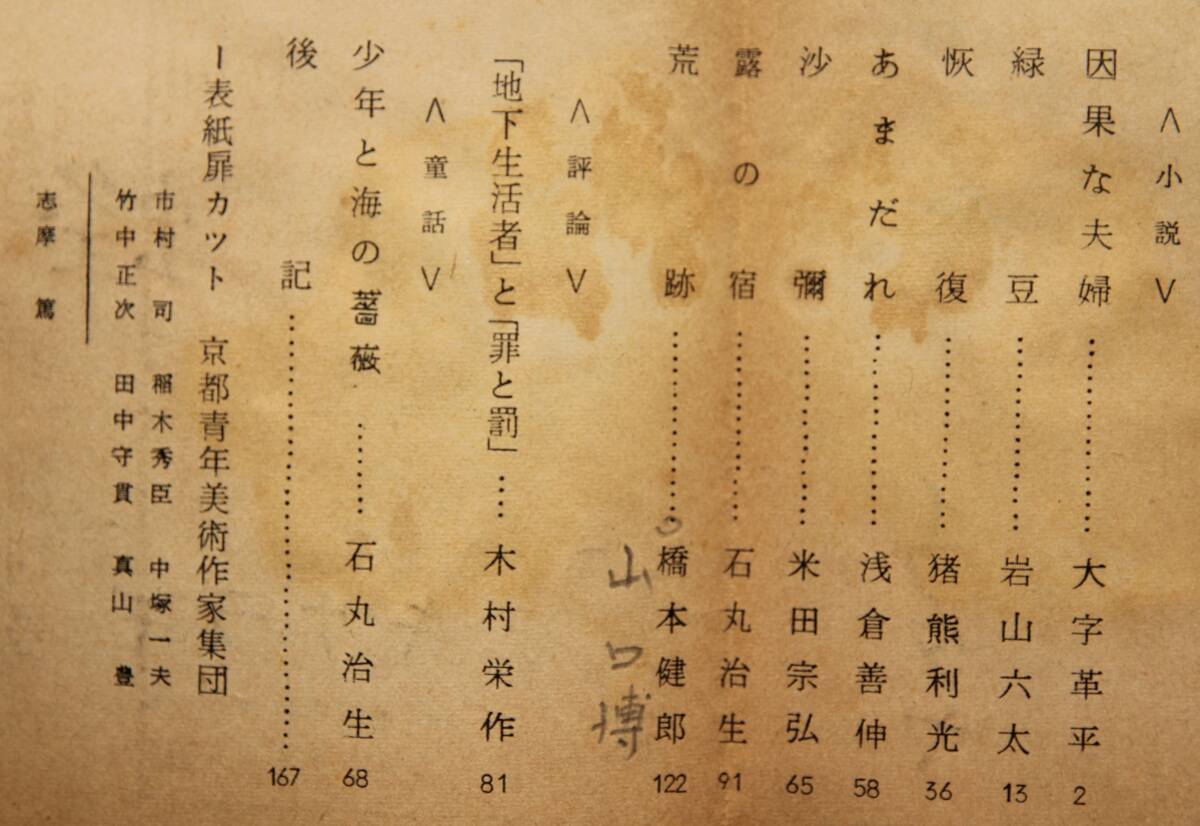 ＜小説＞
因果な夫婦…………大字革平 2
緑豆…………岩山六太 13
恢復…………猪熊利光 36
あまだれ…………浅倉善伸 58
沙彌…………米田宗弘 65
露の宿…………石丸治生 91
荒跡…………橋本健郎 122
山口博
＜評論＞
「地下生活者」と「罪と罰」……木村栄作 81
＜童話＞
少年と海の薔薇……石丸治生 68
後記…………167
ー表紙扉カット 京都青年美術作家集団
市村司 稲木秀臣 中塚一夫
竹中正次 田中守貫 真山豊
志摩篤